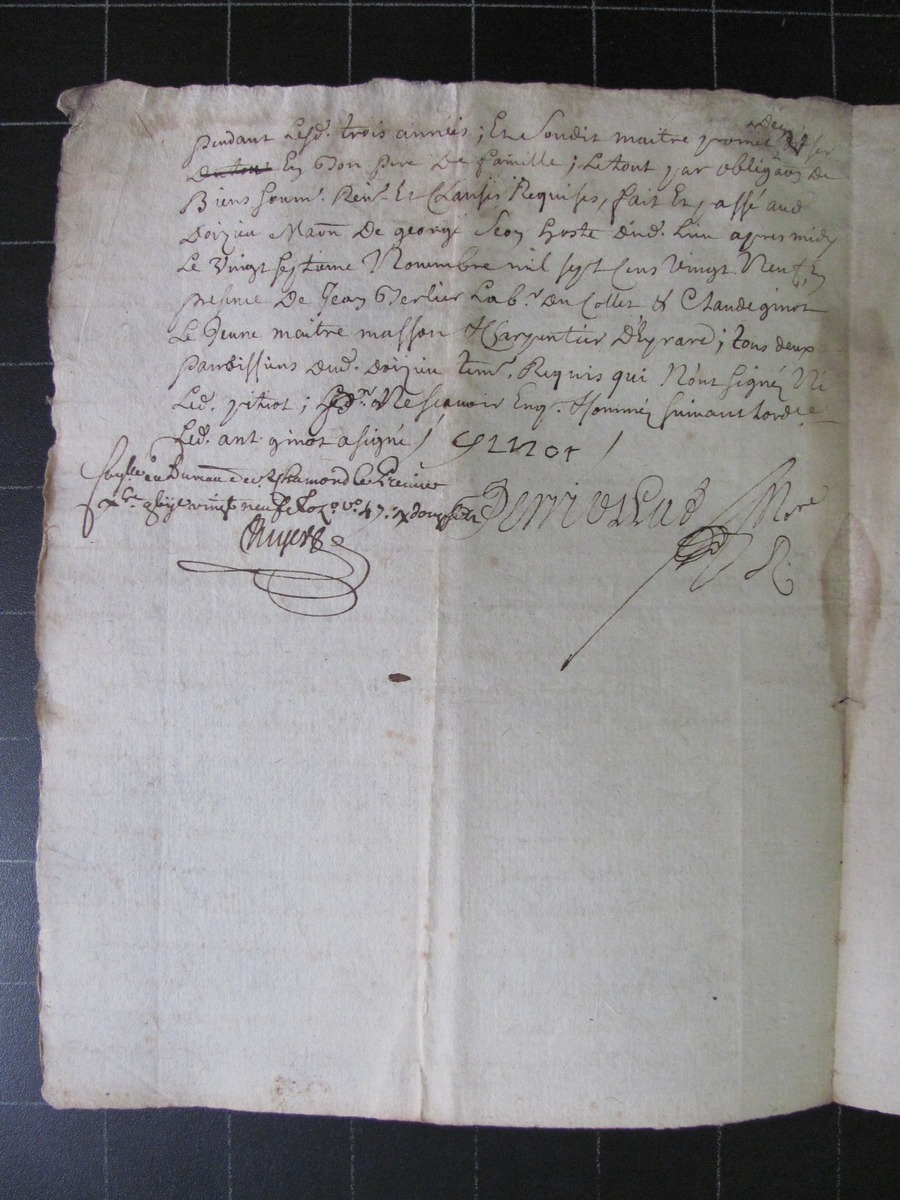 pendant Lesd. trois années ; Et Le Soudit maitre promet
du tout En Bon pere De famille ; Le tout par obligaon De
Biens soum. Ren. Et Clauses Requises, fait Et passé aud
Doizieu Maon De george Seon hoste dud. Lieu apres midy
Le Vingt septieme Novembre mil sept Cens Vingt Neuf, En
presence De Jean Berlier Lab.r du Collet & Claude ginot
Le Jeune maitre masson & Charpentier D'Eyrard ; tous deux
paroissiens dud. doizieu tem. Requis qui N'ont signé, Ni
Led. pitiot ; Ne scavoir Enq. & sommés suivant Lordce
Led. ant. ginot a signé / GINOT /
au Bureau de St Chamond le Premier
vingt neuf fol. vo. 47.